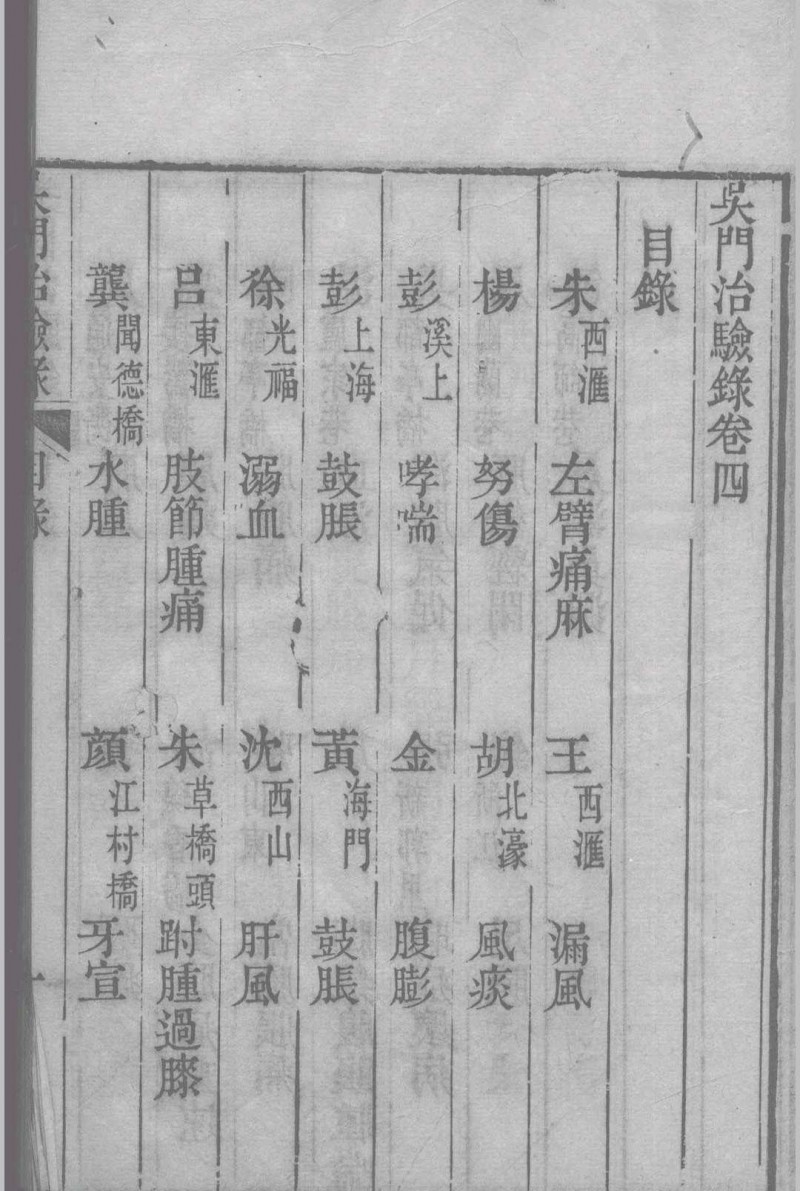 吳門治驗錄卷四
目錄
朱 西滙 左臂痛麻 王 西滙 漏風
楊 努傷 胡 北濠 風痰
彭 溪上 哮喘 金 腹膨
彭 上海 鼓脹 黃 海門 鼓脹
徐 光福 溺血 沈 西山 肝風
呂 東滙 肢節腫痛 朱 草橋頭 跗腫過膝
龔 聞德橋 水腫 顏 江村橋 牙宣
吳門治驗錄 目錄 一